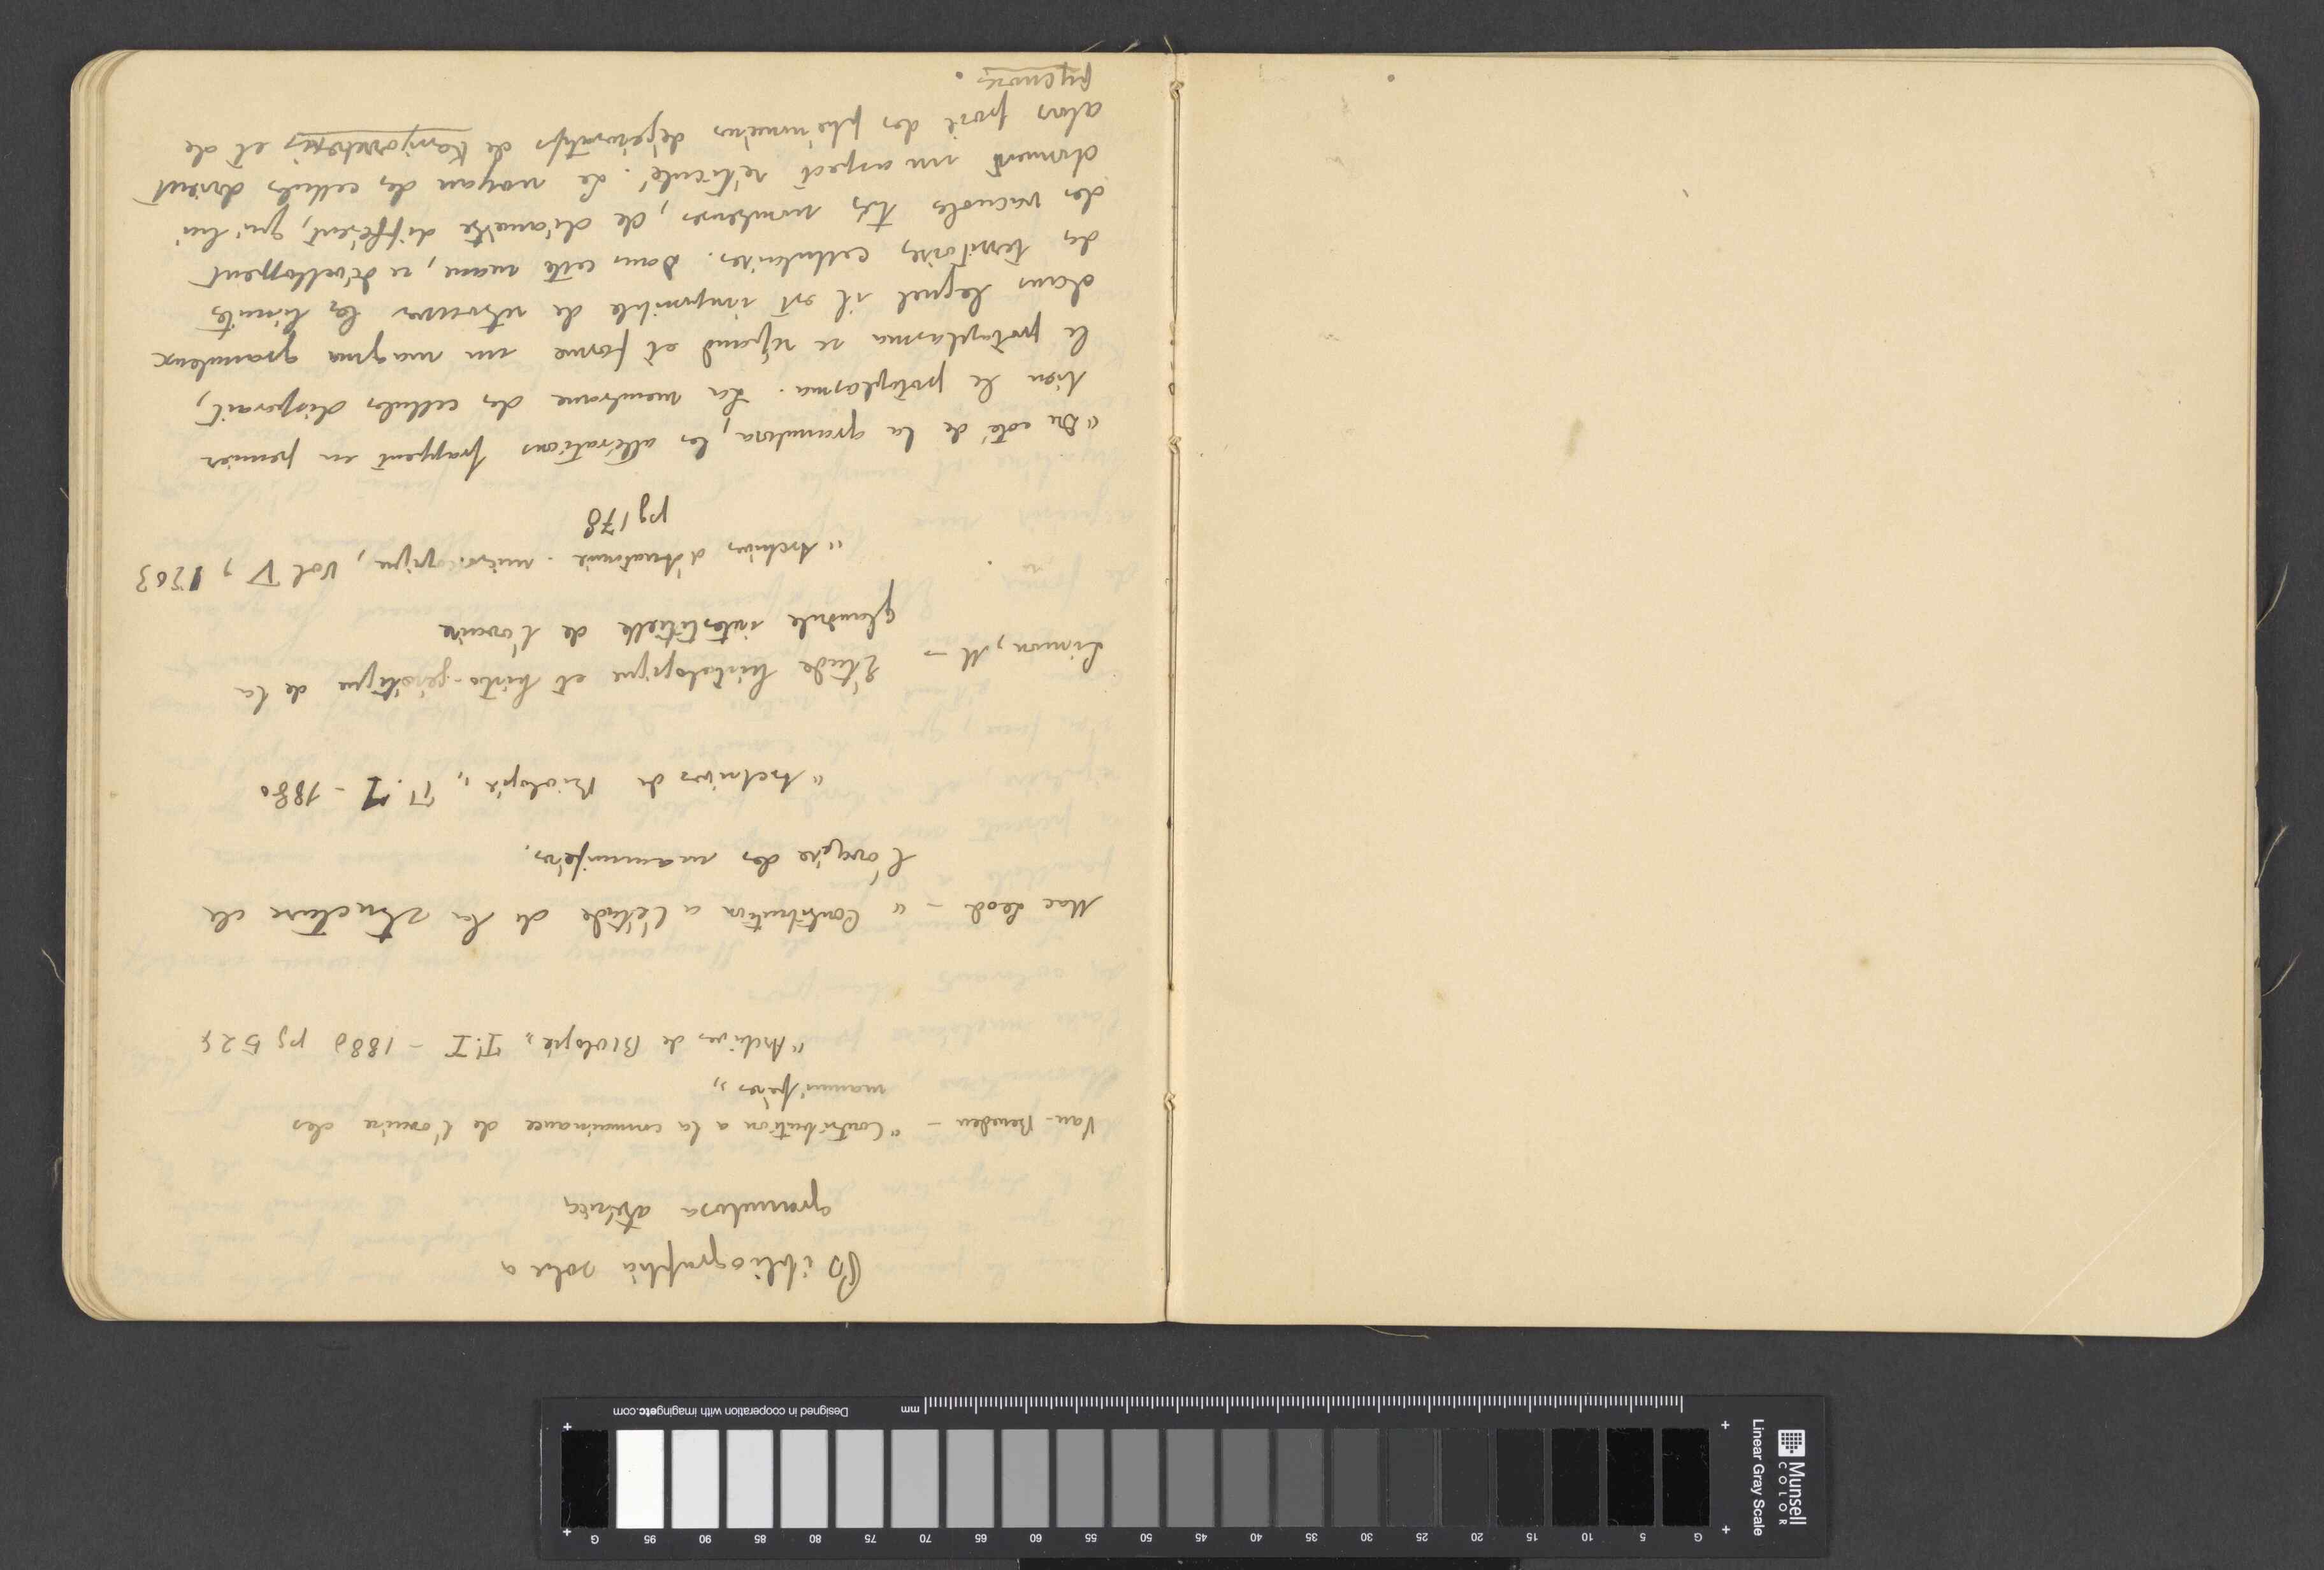 Bibliographia sobre a
granulosa atrésica
Van-Beneden - "Contribution a la connaissance de l'ovaire des
mammifères"
"Archives de Biologie" T.I - 1880 pg 524
Mac Leod - "Contribution a l'étude de la structure de
l'ovaire des mammifères.
"Archives de Biologie" T. I - 1880
Limon, M - Étude histologique et histo-génétique de la
glandule interstitielle de l'ovaire
"Archives d'Anatomie microscopique, Vol V, 1903
pg 178
"Du coté de la granulosa, les altérations frappent en premier
lieu le protoplasma. La membrane des cellules disparait,
le protoplasma se répand et forme un magma granuleux
dans lequel il est impossible de retrouver les limites
des territoires cellulaires. Dans cette masse, se développent
des vacuoles très nombreuses, de diamètre différent, qui lui
donnent un aspect réticulé. Le noyau des cellules devient
alors proie des phénomènes dégénératifs de Karyorrhexis et de
pycnose.
Munsell
COLOR
Linear Gray Scale
G 5 10 15 20 25 30 35 40 45 50 55 60 65 70 75 80 85 90 95 G
mm
Designed in cooperation with imagingetc.com